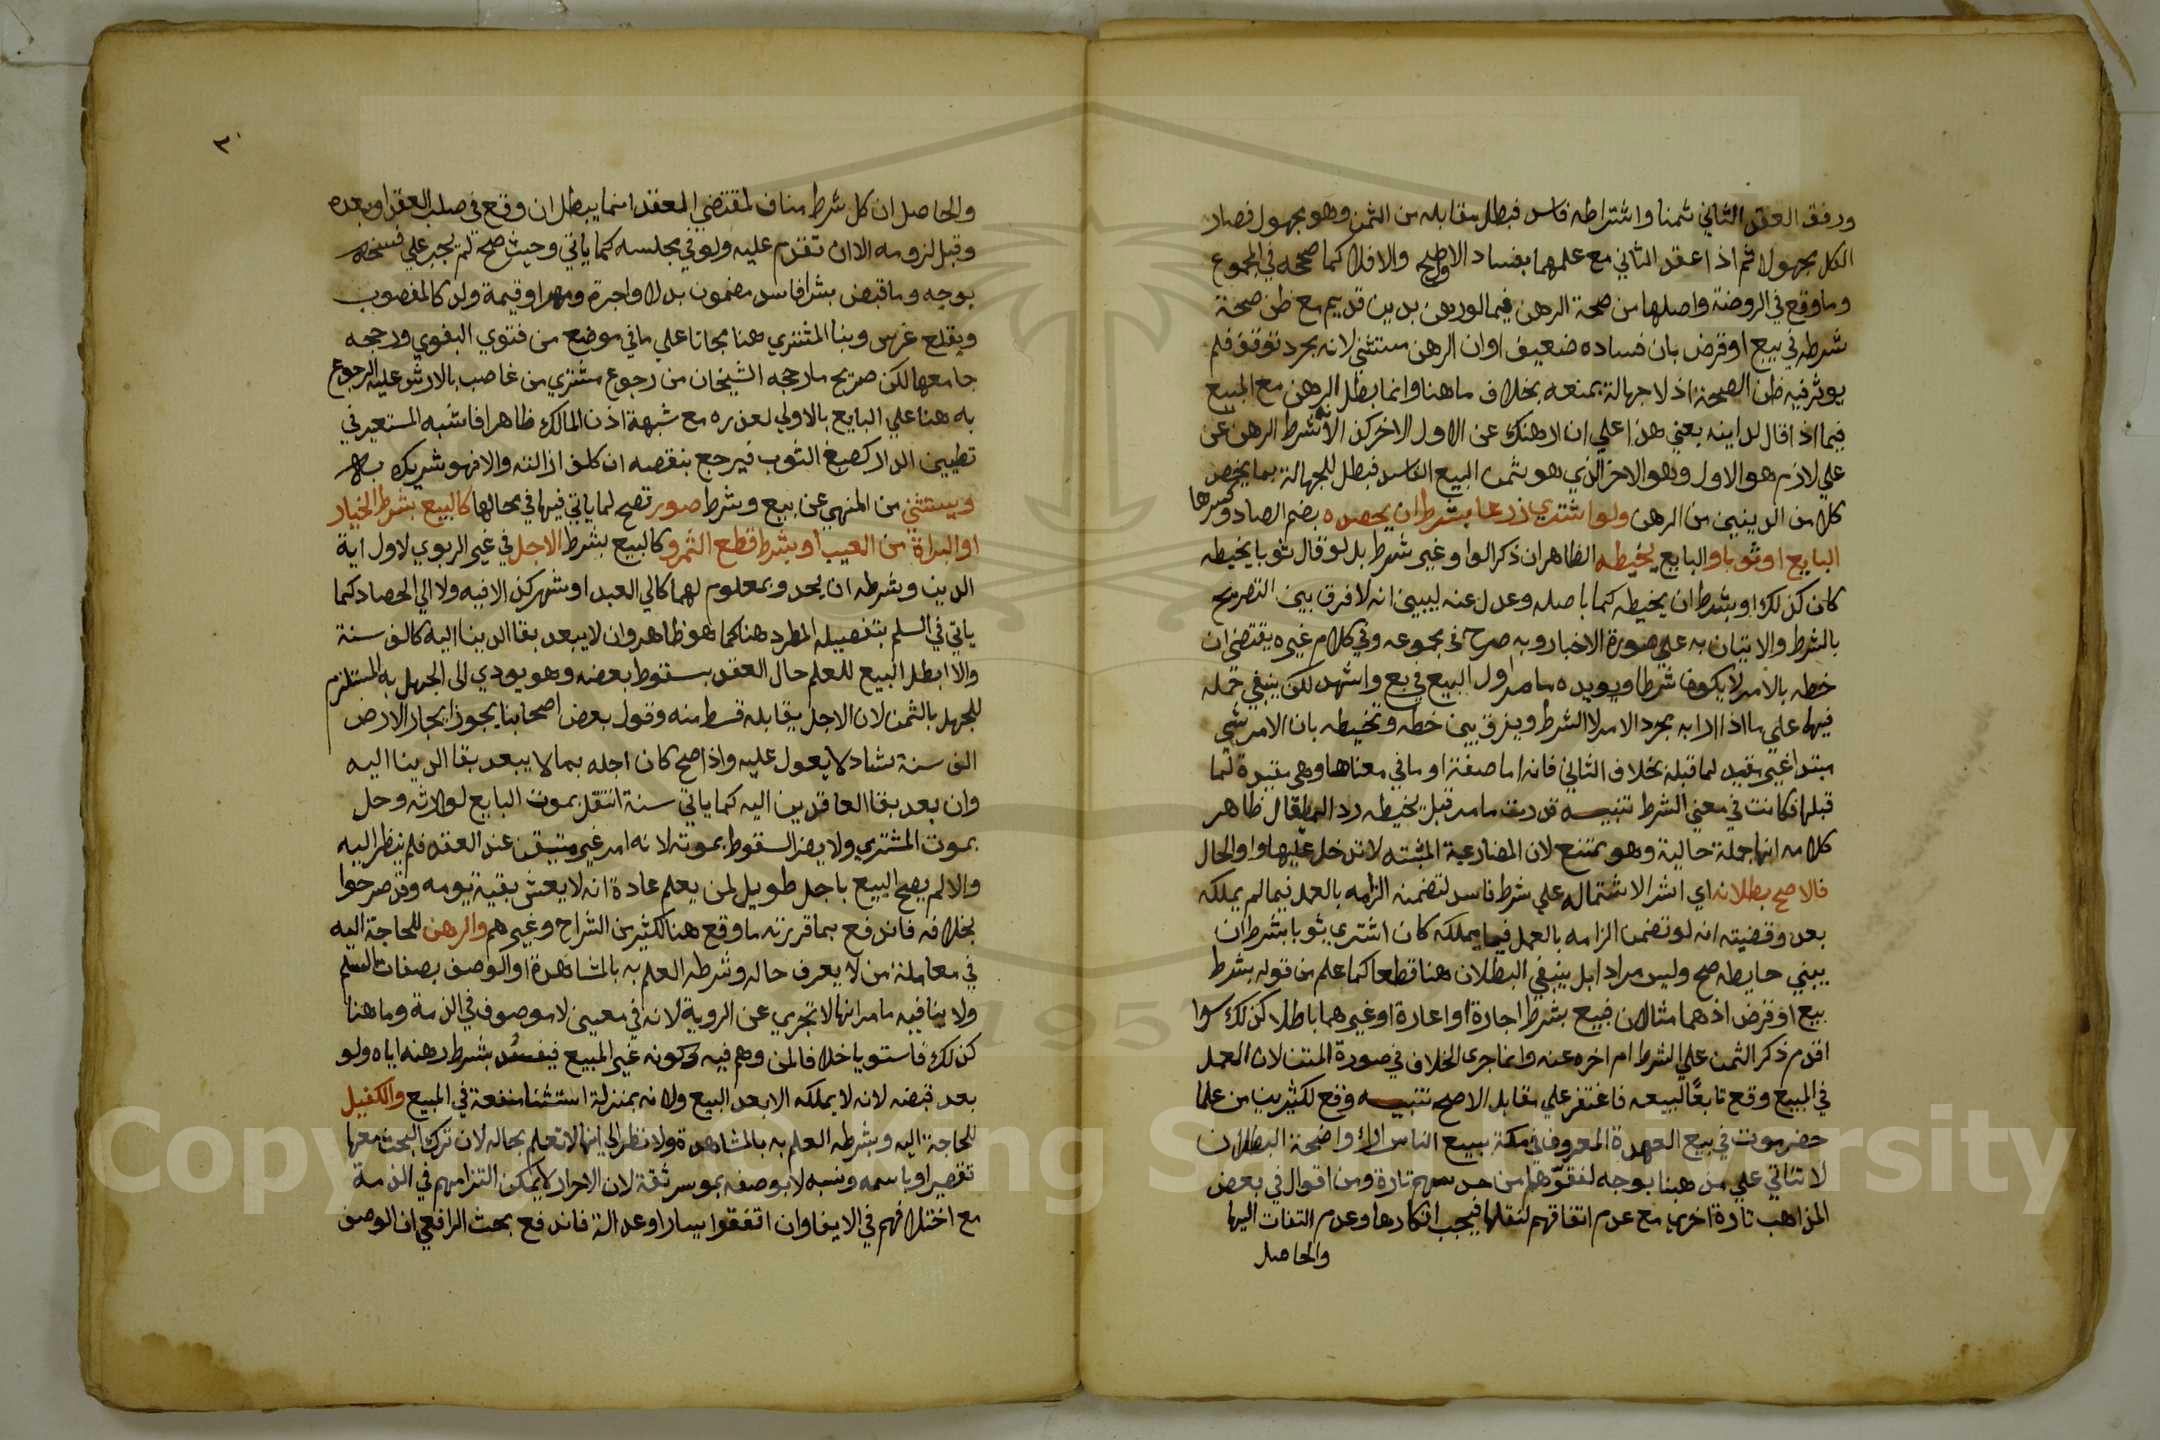 ورفق العقد الثاني ثمنا واشتراطه فاسد فبطل مقابله من الثمن وهو مجهول فصار
الكل مجهولا ثم اذا عقد الثاني مع علمهما بفساد الاول صح والافلا كما صححه في المجموع
وما وقع في الروضة واصلها من صحة الرهن فيما لو رهن بدين قديم مع ظن صحة
شرطه في بيع او قرض بان فساده ضعيف او ان الرهن مستثنى لانه مجرد توثق فلم
يوثر فيه ظن الصحة اذ لا جهالة تمنعه بخلاف ما هنا وانما بطل الرهن مع البيع
فيما اذا قال لداينه بعني هذا على ان ارهنك عن الاول والاخر كذا لانه شرط الرهن عن
علي لازم هو الاول وهو الاخر الذي هو ثمن البيع الفاسد فبطل للجهالة بما يخص
كلا من الدينين من الرهن ولو اشترى زرعا بشرط ان يحصده بضم الصاد وكسرها
البايع او ثوبا والبايع يخيطه الظاهر ان ذكر الواو غير شرط بل لو قال ثوبا يخيطه
كان كذلك او بشرط ان يخيطه كما باصله وعدل عنه ليبين انه لا فرق بين التصريح
بالشرط والاتيان به على صورة الاخبار وبه صرح في مجموعه وفي كلام غيره يقتضي ان
خطه بالامر لا يكون شرطا ويويده ما مر اول البيع في بع واشهد لكن ينبغي حمله
فيها علي ما اذا اراد به مجرد الامر لا الشرط ويفرق بين خطه وتخيطه بان الامر شي
مبتدا غير مقيد لما قبله بخلاف الثاني فانه اما صفة او ما في معناها وهي مقيدة لما
قبلها فكانت في معنى الشرط تنبيه قدرت ما مر قبل يخيطه رد المطقال ظاهر
كلامه انها جملة حالية وهو ممتنع لان المضارعية المثبته لا تدخل عليها واو الحال
فالاصح بطلانه اي الشرا لاشتماله علي شرط فاسد لتضمنه الزامه بالعمل فيما لم يملكه
بعد وقضيته انه لو تضمن الزامه بالعمل فيما يملكه كان اشتري ثوبا بشرط ان
يبني حايطه صح وليس مرادا بل ينبغي البطلان هنا قطعا كما علم من قوله بشرط
بيع او قرض اذ هما مثالان فبيع بشرط اجارة او اعارة او غيرهما باطل كذلك سوا
اقدم ذكر الثمن علي الشرط ام اخره عنه وانما جرى الخلاف في صورة المتن لان العمل
في المبيع وقع تابعا لبيعه فاغتفر علي مقابل الاصح تنبيه وقع لكثيرين من علما
حضرموت في بيع العهدة المعروف في مكة ببيع الناس اراء واضحة البطلان
لا تتاتي علي مذهبنا بوجه لفقوها من حدسهم تارة ومن اقوال في بعض
المذاهب تارة اخرى مع عدم اتقانهم لنقلها فيجب انكارها وعدم التفات اليها
والحاصل
٢٠
والحاصل ان كل شرط مناف لمقتضي العقد انما يبطل ان وقع في صلب العقد او بعده
وقبل لزومه الا ان تقدم عليه ولو في مجلسه كما ياتي وحيث صح لم يجبر علي فسخه
بوجه وما قبض بشرا فاسد مضمون بدلا واجرة ومهرا وقيمة ولد كالمغصوب
ويقلع غرس وبنا المشتري هنا مجانا على ما في موضع من فتوي البغوي ورجحه
جامعها لكن صريح ما رجحه الشيخان من رجوع مشتري من غاصب بالارش عليه الرجوع
به هنا علي البايع بالاولى لعذره مع شبهة اذن المالك ظاهرا فاشبه المستعير في
تطيين الدار كصبغ الثوب فيرجع بنقصه ان كلف ازالته والا فهو شريك به
ويستثني من المنهي عن بيع وشرط صور تصح لما ياتي فيها في محالها كالبيع بشرط الخيار
او البراة من العيب او بشرط قطع الثمر وكالبيع بشرط الاجل في غير الربوي لاول اية
الدين وبشرطه ان يحد وبمعلوم لهما كالي العيد او شهر كذا الا فيه ولا الي الحصاد كما
ياتي في السلم بتفصيله المطرد هنا كما هو ظاهر وان لا يبعد بقا الدنيا اليه كالف سنة
والا ابطل البيع للعلم حال العقد بسقوط بعضه وهو يودي الى الجهل به المستلزم
للجهل بالثمن لان الاجل يقابله قسط منه وقول بعض اصحابنا يجوز ايجار الارض
الف سنة شاذ لا يعول عليه واذا صح كان اجله بما لا يبعد بقا الدنيا اليه
وان بعد بقا العاقدين اليه كما ياتي سنة انتقل بموت البايع لوارثه وحل
بموت المشتري ولا يضر السقوط بموته لانه امر غير متيقن عند العقد فلم ينظر اليه
والا لم يصح البيع باجل طويل لمن يعلم عادة انه لا يعش بقية يومه وقد صرحوا
بخلافه فاندفع بما قررته ما وقع هنا لكثير من الشراح وغيرهم والرهن للحاجة اليه
في معاملة من لا يعرف حاله وشرطه العلم به بالمشاهدة او الوصف بصفات السلم
ولا ينافيه ما مر انها لا تجزي عن الروية لانه في معين لا موصوف في الذمة وما هنا
كذلك فاستويا خلافا لمن وهم فيه وكونه غير المبيع فيفسد بشرط رهنه اياه ولو
بعد قبضه لانه لا يملكه الا بعد البيع ولانه بمنزلة استثنا منفعة في المبيع والكفيل
للحاجة اليه وبشرطه العلم به بالمشاهدة ولا نظر الى انها لا تعلم بحاله لان ترك البحث معها
تقصير او باسمه ونسبه لا بوصفه بموسر ثقة لان الاحرار لا يمكن التزامهم في الذمة
مع اختلافهم في الايفا وان اتفقوا يسارا وعدالة فاندفع بحث الرافعي ان الوصف
Copyright © King Saud University
1957